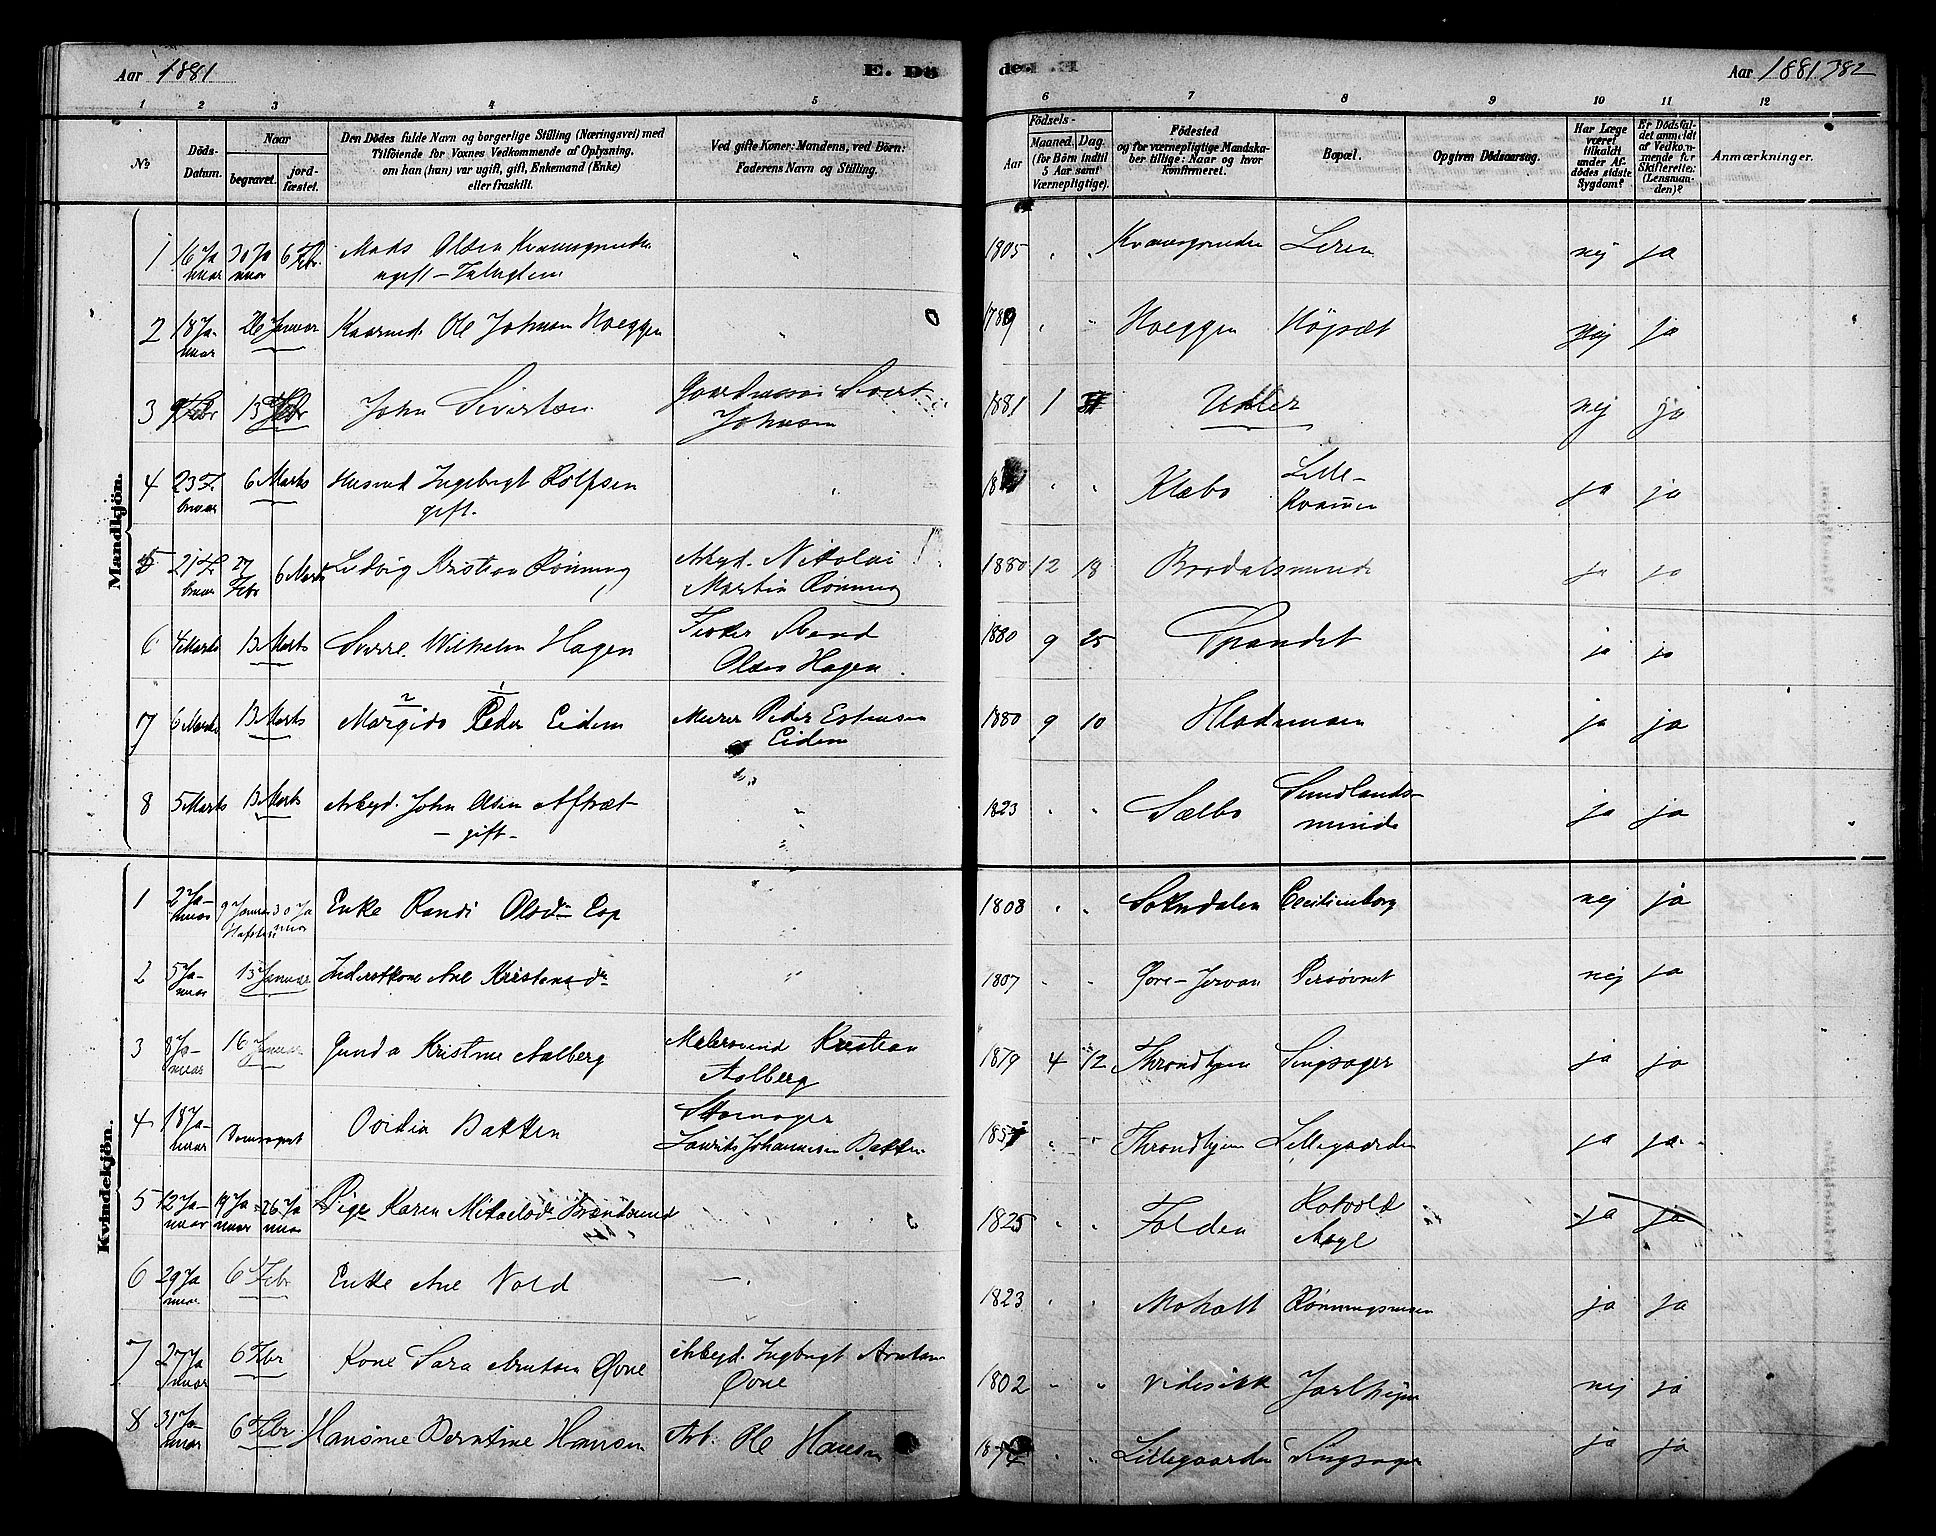 Aar 1881
E. Dö
de. E.
Aar 1881 382
1 2 3 4 5 6 7 8 9 10 11 12
№
Döds-Datum.
Naar
begravet.
jordfæstet.
Den Dödes fulde Navn og borgerlige Stilling (Næringsvei) med
Tilföiende for Voxnes Vedkommende af Oplysning,
om han (hun) var ugift, gift, Enkemand (Enke)
eller fraskilt.
Ved gifte Koner: Mandens, ved Börn:
Faderens Navn og Stilling.
Födsels-
Aar
Maaned. Dag.
(for Börn indtil
5 Aar samt
Værnepligtige).
Födested
og for værnepligtige Mandskaber tillige: Naar og hvor
konfirmeret.
Bopæl.
Opgiven Dödsaarsag.
Har Læge
været
tilkaldt
under Afdödes sidste
Sygdom?
Er Dödsfaldet anmeldt
af Vedkommende for
Skifteretten
(Lensmanden)?
Anmærkninger.
Mandkjön.
1 16 Januar 30 Januar 6 Febr. Mads Olsen Kvamsgrinden ugift 1805 Kvamsgrinden Leren nej ja
2 18 Januar 26 Januar Ole Johnsen Hoeggen 1789 Hoeggen Högsæt nej ja
3 9 Febr 13 Febr John Sivertsen Sivert Johnsen 1881 1 Udler nej ja
4 23 Februar 6 Marts Husmd Ingebrigt Rolfsen gift. Klæbo Lille-Kvammen ja ja
5 21 Februar 27 Febr 6 Marts Ludvig Kristian Rönning Arbejd. Nikolai Martin Rönning 1880 12 18 Brodalsminde ja ja
6 4 Marts 13 Marts Sverre Wilhelm Hagen Svend Olsen Hagen. 1880 9 25 Spandet ja ja
7 6 Marts 13 Marts Margido Peder Eidem Murer Peder Estensen Eidem 1880 9 10 Hladmoen ja ja
8 5 Marts 13 Marts Arbejd. John Olsen Aftræt - gift - 1823 Sælbo Sundlandsminde ja ja
Kvindekjön.
1 2 Januar 9 Januar 30 Januar Enke Randi Olsdr. Lop 1808 Soknedalen Cecilienborg nej ja
2 5 Januar 15 Januar Inderstkone Ane Kristensdr 1807 Persövnet nej ja
3 8 Januar 16 Januar Gunda Kristine Aalberg Malersvend Kristian Aalberg 1879 4 12 Throndhjem Singsager ja ja
4 18 Januar Domsognet Ovidia Bakken Laurits Johannesen Bakken Throndhjem Lillegaarden ja ja
5 12 Januar 19 Januar 26 Januar Pige Karen Mikaelsdr. 1825 Folden Rotvold Asyl ja ja
6 29 Januar 6 Febr Enke Ane Vold 1823 Moholt Rönningsmoen ja ja
7 27 Januar 6 Febr Kone Sara Arntsen Övne Arbejd. Ingbrigt Arntsen Övne 1802 Jarlhejm nej ja
8 31 Januar 6 Febr Hansine Berntine Hansen Arb. Ole Hansen Lillegaarden Singsager ja ja